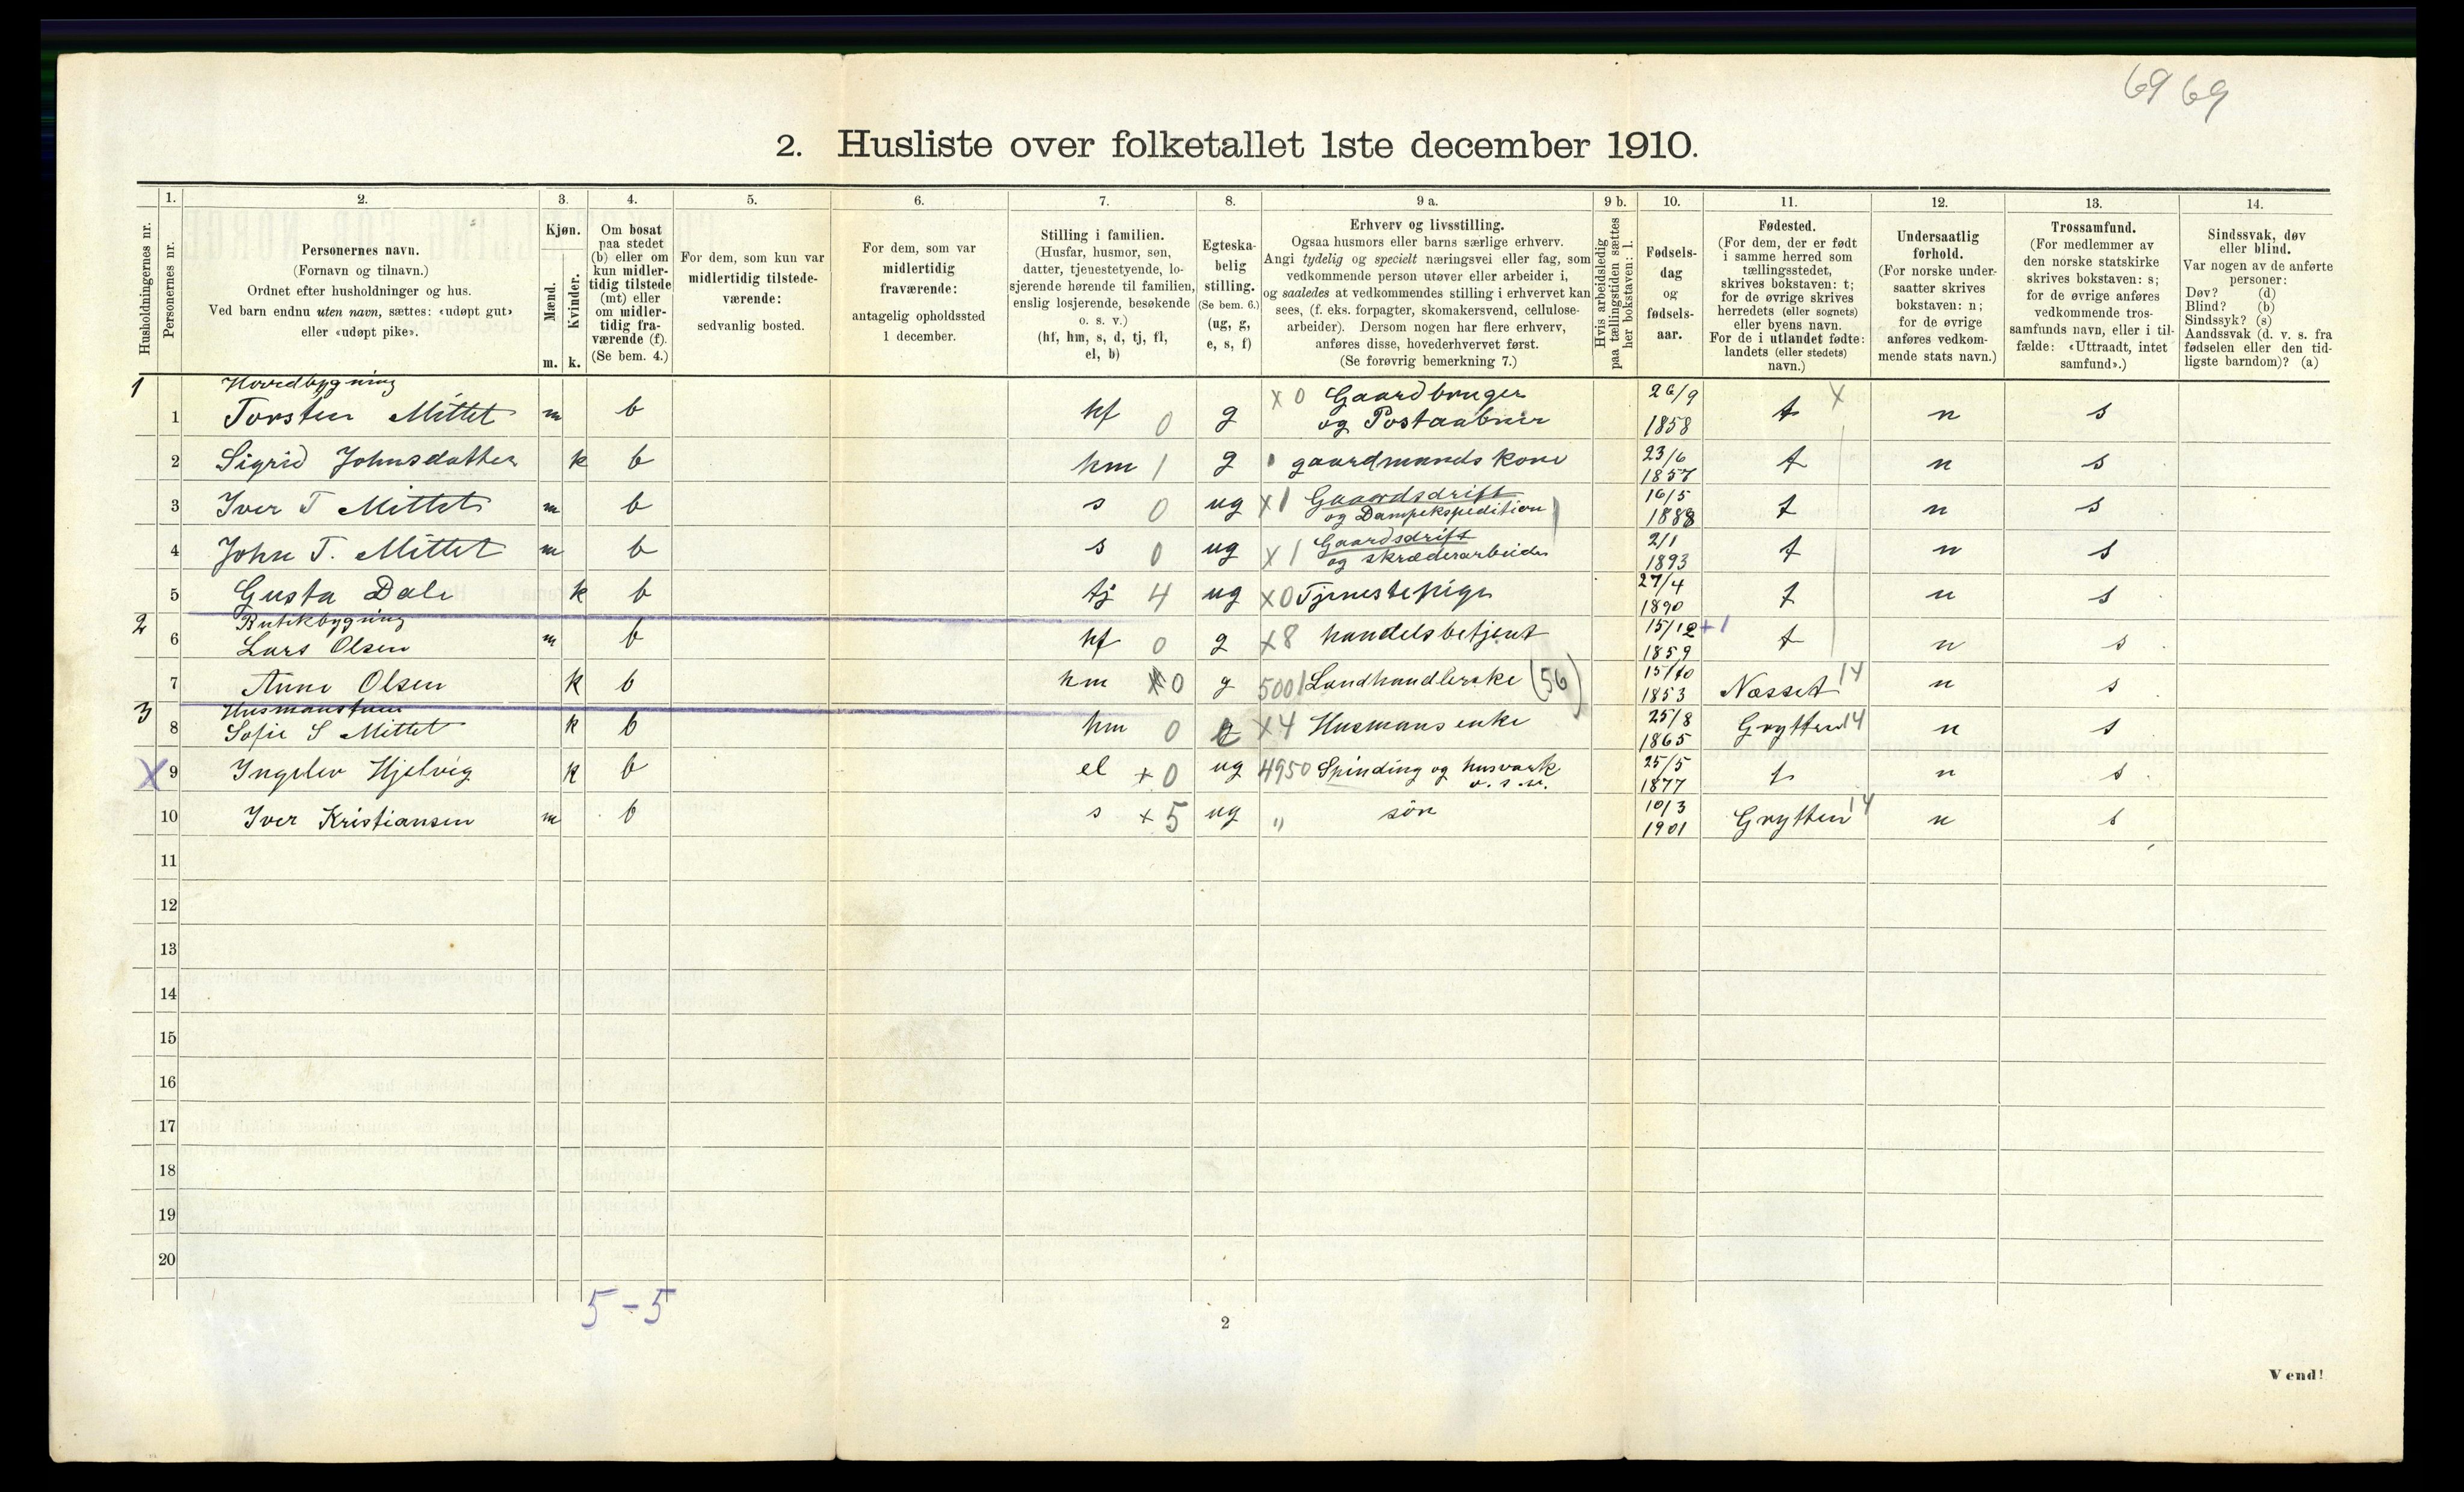 69 69
2. Husliste over folketallet 1ste december 1910.
Husholdningernes nr.
1.
Personernes nr.
2.
Personernes navn.
(Fornavn og tilnavn.)
Ordnet efter husholdninger og hus.
Ved barn endnu uten navn, sættes: «udøpt gut»
eller «udøpt pike».
3.
Kjøn.
Mænd.
Kvinder.
m. k.
4.
Om bosat
paa stedet
(b) eller om
kun midler-
tidig tilstede
(mt) eller
om midler-
tidig fra-
værende (f).
(Se bem. 4.)
5.
For dem, som kun var
midlertidig tilstede-
værende:
sedvanlig bosted.
6.
For dem, som var
midlertidig
fraværende:
antagelig opholdssted
1 december.
7.
Stilling i familien.
(Husfar, husmor, søn,
datter, tjenestetyende, lo-
sjerende hørende til familien,
enslig losjerende, besøkende
o. s. v.)
(hf, hm, s, d, tj, fl,
el, b)
8.
Egteska-
belig
stilling.
(Se bem. 6.)
(ug, g,
e, s, f)
9 a.
Erhverv og livsstilling.
Ogsaa husmors eller barns særlige erhverv.
Angi tydelig og specielt næringsvei eller fag, som
vedkommende person utøver eller arbeider i,
og saaledes at vedkommendes stilling i erhvervet kan
sees, (f. eks. forpagter, skomakersvend, cellulose-
arbeider). Dersom nogen har flere erhverv,
anføres disse, hovederhvervet først.
(Se forøvrig bemerkning 7.)
9 b.
Hvis arbeidsledig
paa tællingstiden sættes
her bokstaven: l.
10.
Fødsels-
dag
og
fødsels-
aar.
11.
Fødested.
(For dem, der er født
i samme herred som
tællingsstedet,
skrives bokstaven: t;
for de øvrige skrives
herredets (eller sognets)
eller byens navn.
For de i utlandet fødte:
landets (eller stedets)
navn.)
12.
Undersaatlig
forhold.
(For norske under-
saatter skrives
bokstaven: n;
for de øvrige
anføres vedkom-
mende stats navn.)
13.
Trossamfund.
(For medlemmer av
den norske statskirke
skrives bokstaven: s;
for de øvrige anføres
vedkommende tros-
samfunds navn, eller i til-
fælde: «Uttraadt, intet
samfund».)
14.
Sindssvak, døv
eller blind.
Var nogen av de anførte
personer:
Døv? (d)
Blind? (b)
Sindssyk? (s)
Aandssvak (d. v. s. fra
fødselen eller den tid-
ligste barndom)? (a)
1 Hovedbygning
1 Torsten Mittet m b hf 0 g x 0 Gaardbruger og Postaabner 26/9 1858 t x n s
2 Sigrid Johnsdatter k b hm 1 g gaardmands kone 23/6 1857 t n s
3 Iver T Mittet m b s 0 ug x1 Gaardsdrift og Dampekspedition 16/5 1888 t n s
4 John T. Mittet m b s 0 ug x1 Gaardsdrift og skræderarbeider 2/1 1893 t n s
5 Gusta Dale k b tj 4 ug x0 Tjenestepige 27/4 1890 t n s
2 Butikbygning
6 Lars Olsen m b hf 0 g x8 handelsbetjent 15/12 +1 1859 t n s
7 Anne Olsen k b hm x0 g 5001 Landhandlerske (56) 15/10 1853 Næsset 14 n s
3 Husmanstuen
8 Sofie S Mittet k b hm 0 e x4 Husmans enke 25/8 1865 Grytten 14 n s
x 9 Ingelev Hjelvig k b el +0 ug 4950 Spinding og husvask o. s. v. 25/5 1877 t n s
10 Iver Kristiansen m b s +5 ug " søn 10/3 1901 Grytten 14 n s
11
12
13
14
15
16
17
18
19
20
5-5
2
Vend!